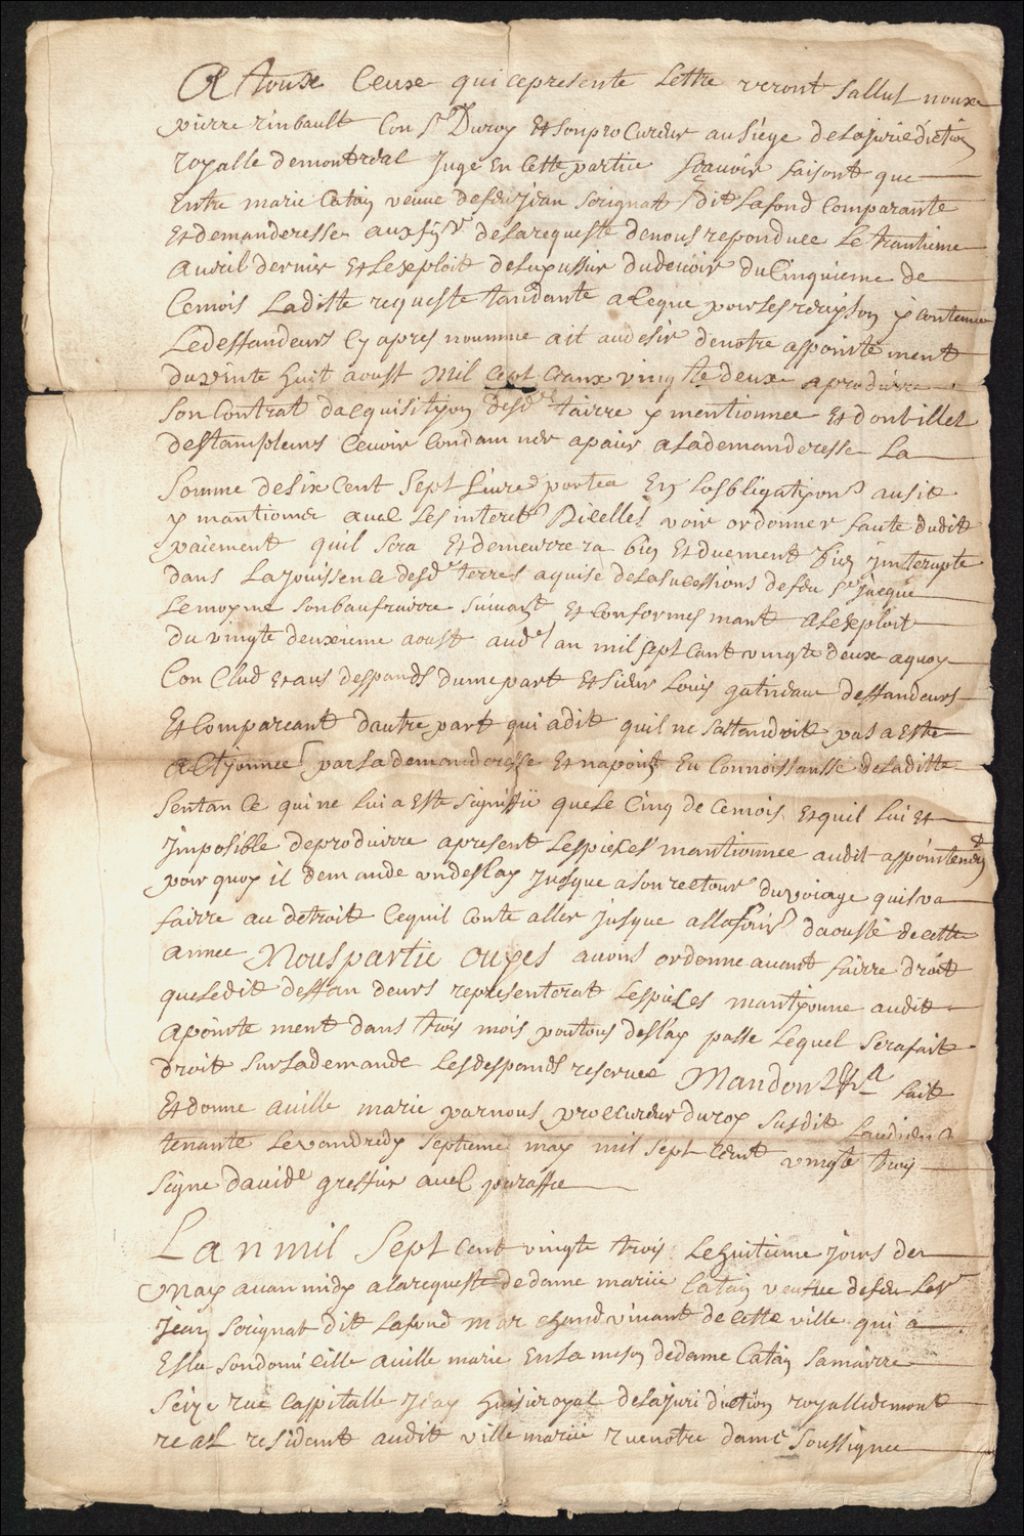 A Tousx Ceuxe qui cepresente Lettre veront Sallut nouxe
pierre rinbault Con Sr Duroy Et Sonprocureur auSiege delajuriediction
royalle demontreal Juge En Cette partie Scavoir faisont que
Entre marie Catin veuve defeu jean Sorignat dit Lafond Comparante
Et demanderesse aux fins delarequeste denous reponduee Le trantieme
avril dernier Et Lexploit deLhussier dudevoir du Cinquieme de
Cemois Laditte requeste tandante aCeque pour les raison y contenue
Ledeffandeurs Cy apres noumme ait audesir denotre appointement
duvinte huit aoust Mil Sept Cranx vingte deux aproduirre
Son Contrat dacquisityon desd. tairre y mentionnee Et don billet
destampleurs Cevoir Condamner apaier aLademanderesse La
Somme deSix Cent Sept Livre portea En Losbligatyon ausit
y mantionner avec Les interet Dicelles voir ordonner faute dudit
paiement quil Sera Et demeurrera bien Et duement Fin jnterupte
dans Lajouissence desd. terres aquise deLasucessions defeu Sr jacque
Lemoyne Sonbaufrairre Suivant Et Conformesmant aLexploit
du vingte deuxieme aoust aud. an mil Sept Cant vingte deux aquoy
Con Clud Et aus despands dune part Et Sieur Louis gatineau deffandeurs
Et Compareant dautre part qui adit quil ne Sattandoit pas aEstre
aCtyonnee parLademanderesse Et napoint Eu Connoissansse deladitte
Sentance qui ne Lui aEste Signiffii queLe Cinq de Cemois Et quil Lui Et
Jmposible deproduirre apresent Lespieces mantionnee audit appointement
pour quoy il demande undeslay Jusque a Son rectour duvoiage quil va
fairre au detroit Cequil Conte aller jusque alla foirs daouste decette
annee Nous partie ouyes avons ordonne avant fairre droit
queledit deffandeurs representerat Lespieces mantyonne audit
apointement dans trois mois pourtous deslay passe Lequel Serafait
droit SurLademande Les despands reservee Mandons fait
Et donne aville marie parnous procureur duroy Susdit Laudience
tenante Levandredy Septieme may mil Sept Cent vingte trois
Signe davide greffier avec paraffe
Lan mil Sept Cent vingte trois Lehuitieme jours de
May avan midy alarequeste de dame mariie Catin veufue defeu Le Sr
jean Sorignat dit Lafond marchand vivant de Cette ville qui a
Eslu Son domicille aville marie En La meson dedame Catin Samairre
Seize rue Cappitalle huissiroyal delajuridiction royalledemont
real resident audit ville mariie rue notre dame Soussignee